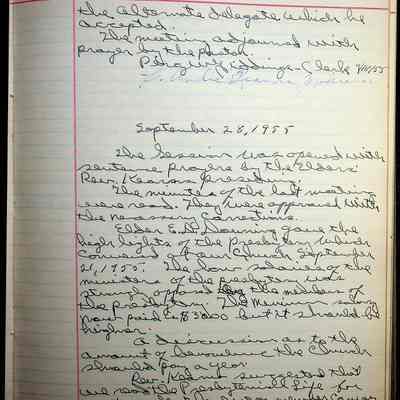 the Alternate delegate which he
accepted.
The meeting adjourned with
prayer by the Pastor.
Clerk
September 28, 1955
The Session was opened with
sentence prayers by the Elders
Rev. Kearns presided.
The minutes of the last meeting
were read. They were approved with
the necessary corrections.
Elder E. D. Downing gave the
high lights of the Presbytery which
convened at our Church September
21, 1955. The low salaries of the
ministers of the presbytery was
strongly opposed by the members of
the presbytery. The Minimum salary
now paid is $3000 but it should be
higher.
A discussion as to the
amount of benevolence the Church
should pay a year.
Rev. Kearns suggested that
we read the Presbyterian Life for